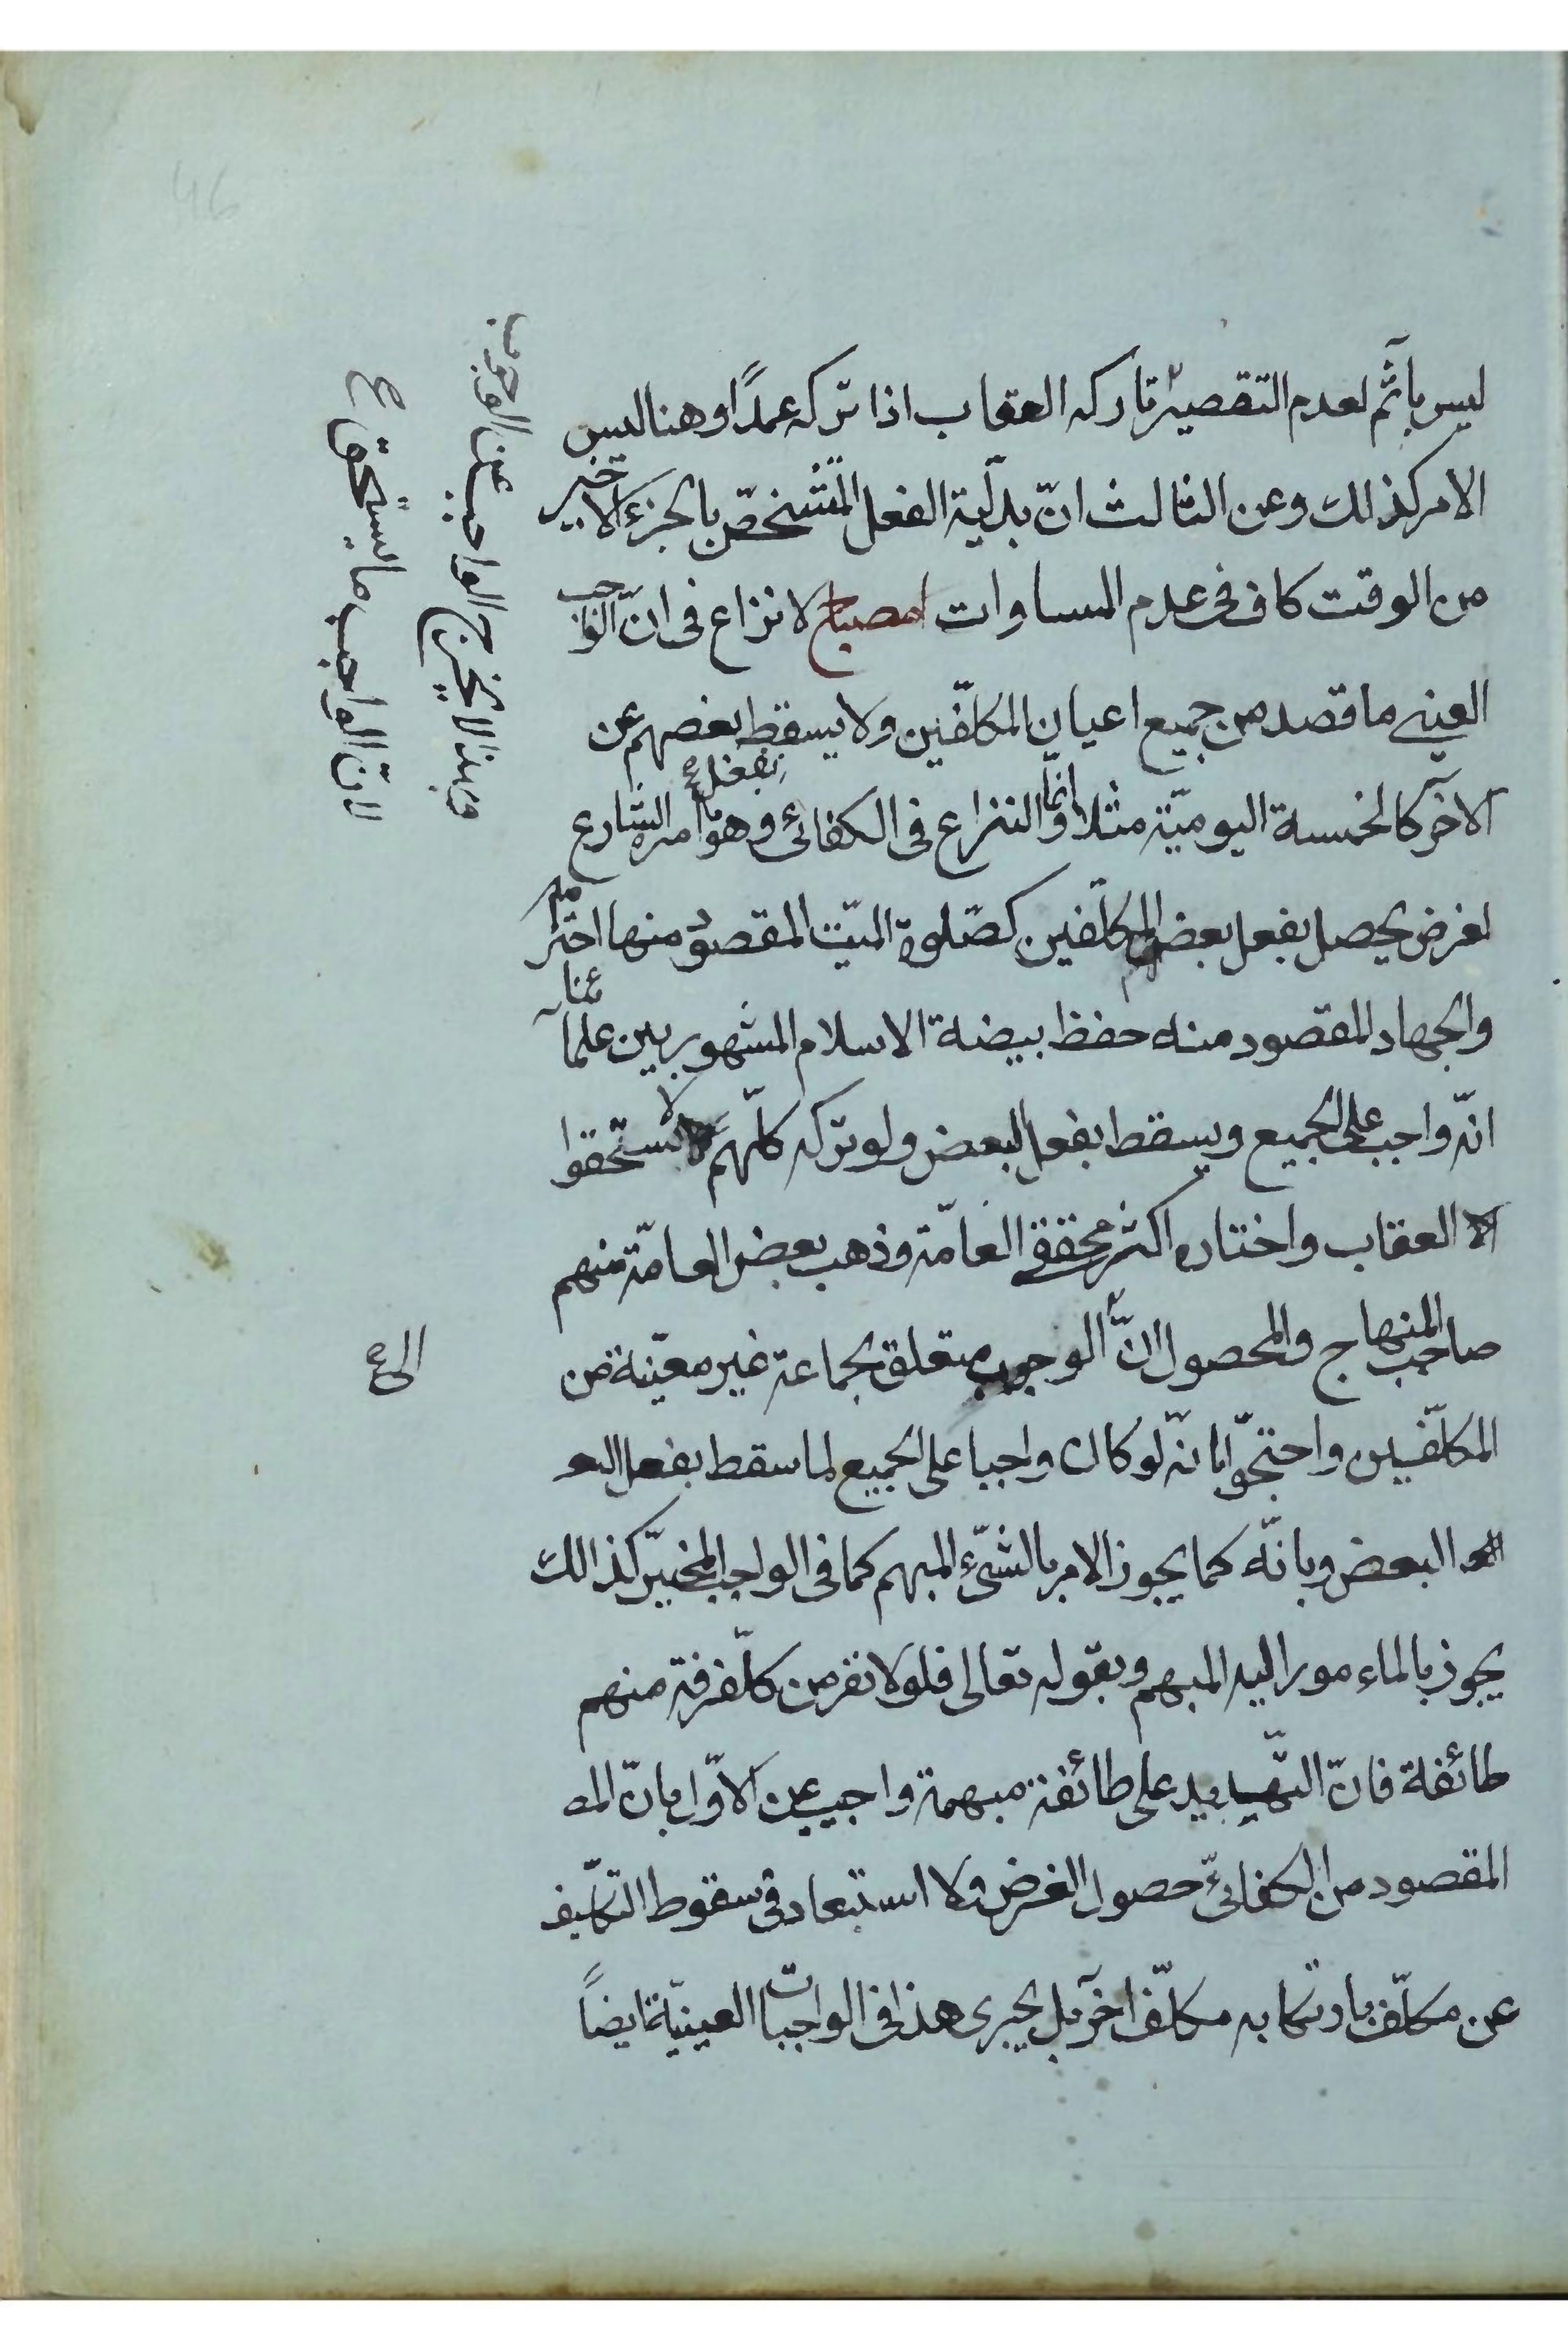 ليس بآثم لعدم التقصير تاركه العقاب اذا تركه عمداً وهنا ليس
الامر كذلك وعن الثالث انّ بدليّة الفعل المتشخّص بالجزء الاخير
من الوقت كاف فى عدم المساوات مصباح لا نزاع فى انّ الواجب
العينى ما قصد من جميع اعيان المكلّفين ولا يسقط بعضهم عن
بفعل
الآخر كالخمسة اليوميّة مثلا وانّما النزاع فى الكفائى وهو ما امره الشارع
لغرض يحصل بفعل بعض المكلّفين كصلوة الميّت المقصود منها احترامه
والجهاد المقصود منه حفظ بيضة الاسلام المشهور بين علمآئنا
انّه واجب على الجميع ويسقط بفعل البعض ولو تركه كلّهم لاستحقوا
العقاب واختاره اكثر محققى العامّة وذهب بعض العامّة منهم
صاحب المنهاج والمحصول انّ الوجوب متعلق بجماعة غير معيّنة من
المكلّفين واحتجّوا بانّه لو كان واجبا على الجميع لما سقط بفعل البعـ
البعض وبانّه كما يجوز الامر بالشىء المبهم كما فى الواجب المخيّر كذالك
يجوز بالماءمور اليه المبهم وبقوله تعالى فلولا نفر من كلّ فرقة منهم
طائفة فانّ التهديد على طائفة مبهمة واجيب عن الاوّل بانّ المـ
المقصود من الكفائىّ حصول الغرض ولا استبعاد فى سقوط التكليف
عن مكلّف بارتكابه مكلّف آخر بل يجرى هذا فى الواجبات العينيّة ايضاً
وبهذا لا يخرج الواجب عن الوجوب
لانّ الواجب ما يستحق ع
الى
46